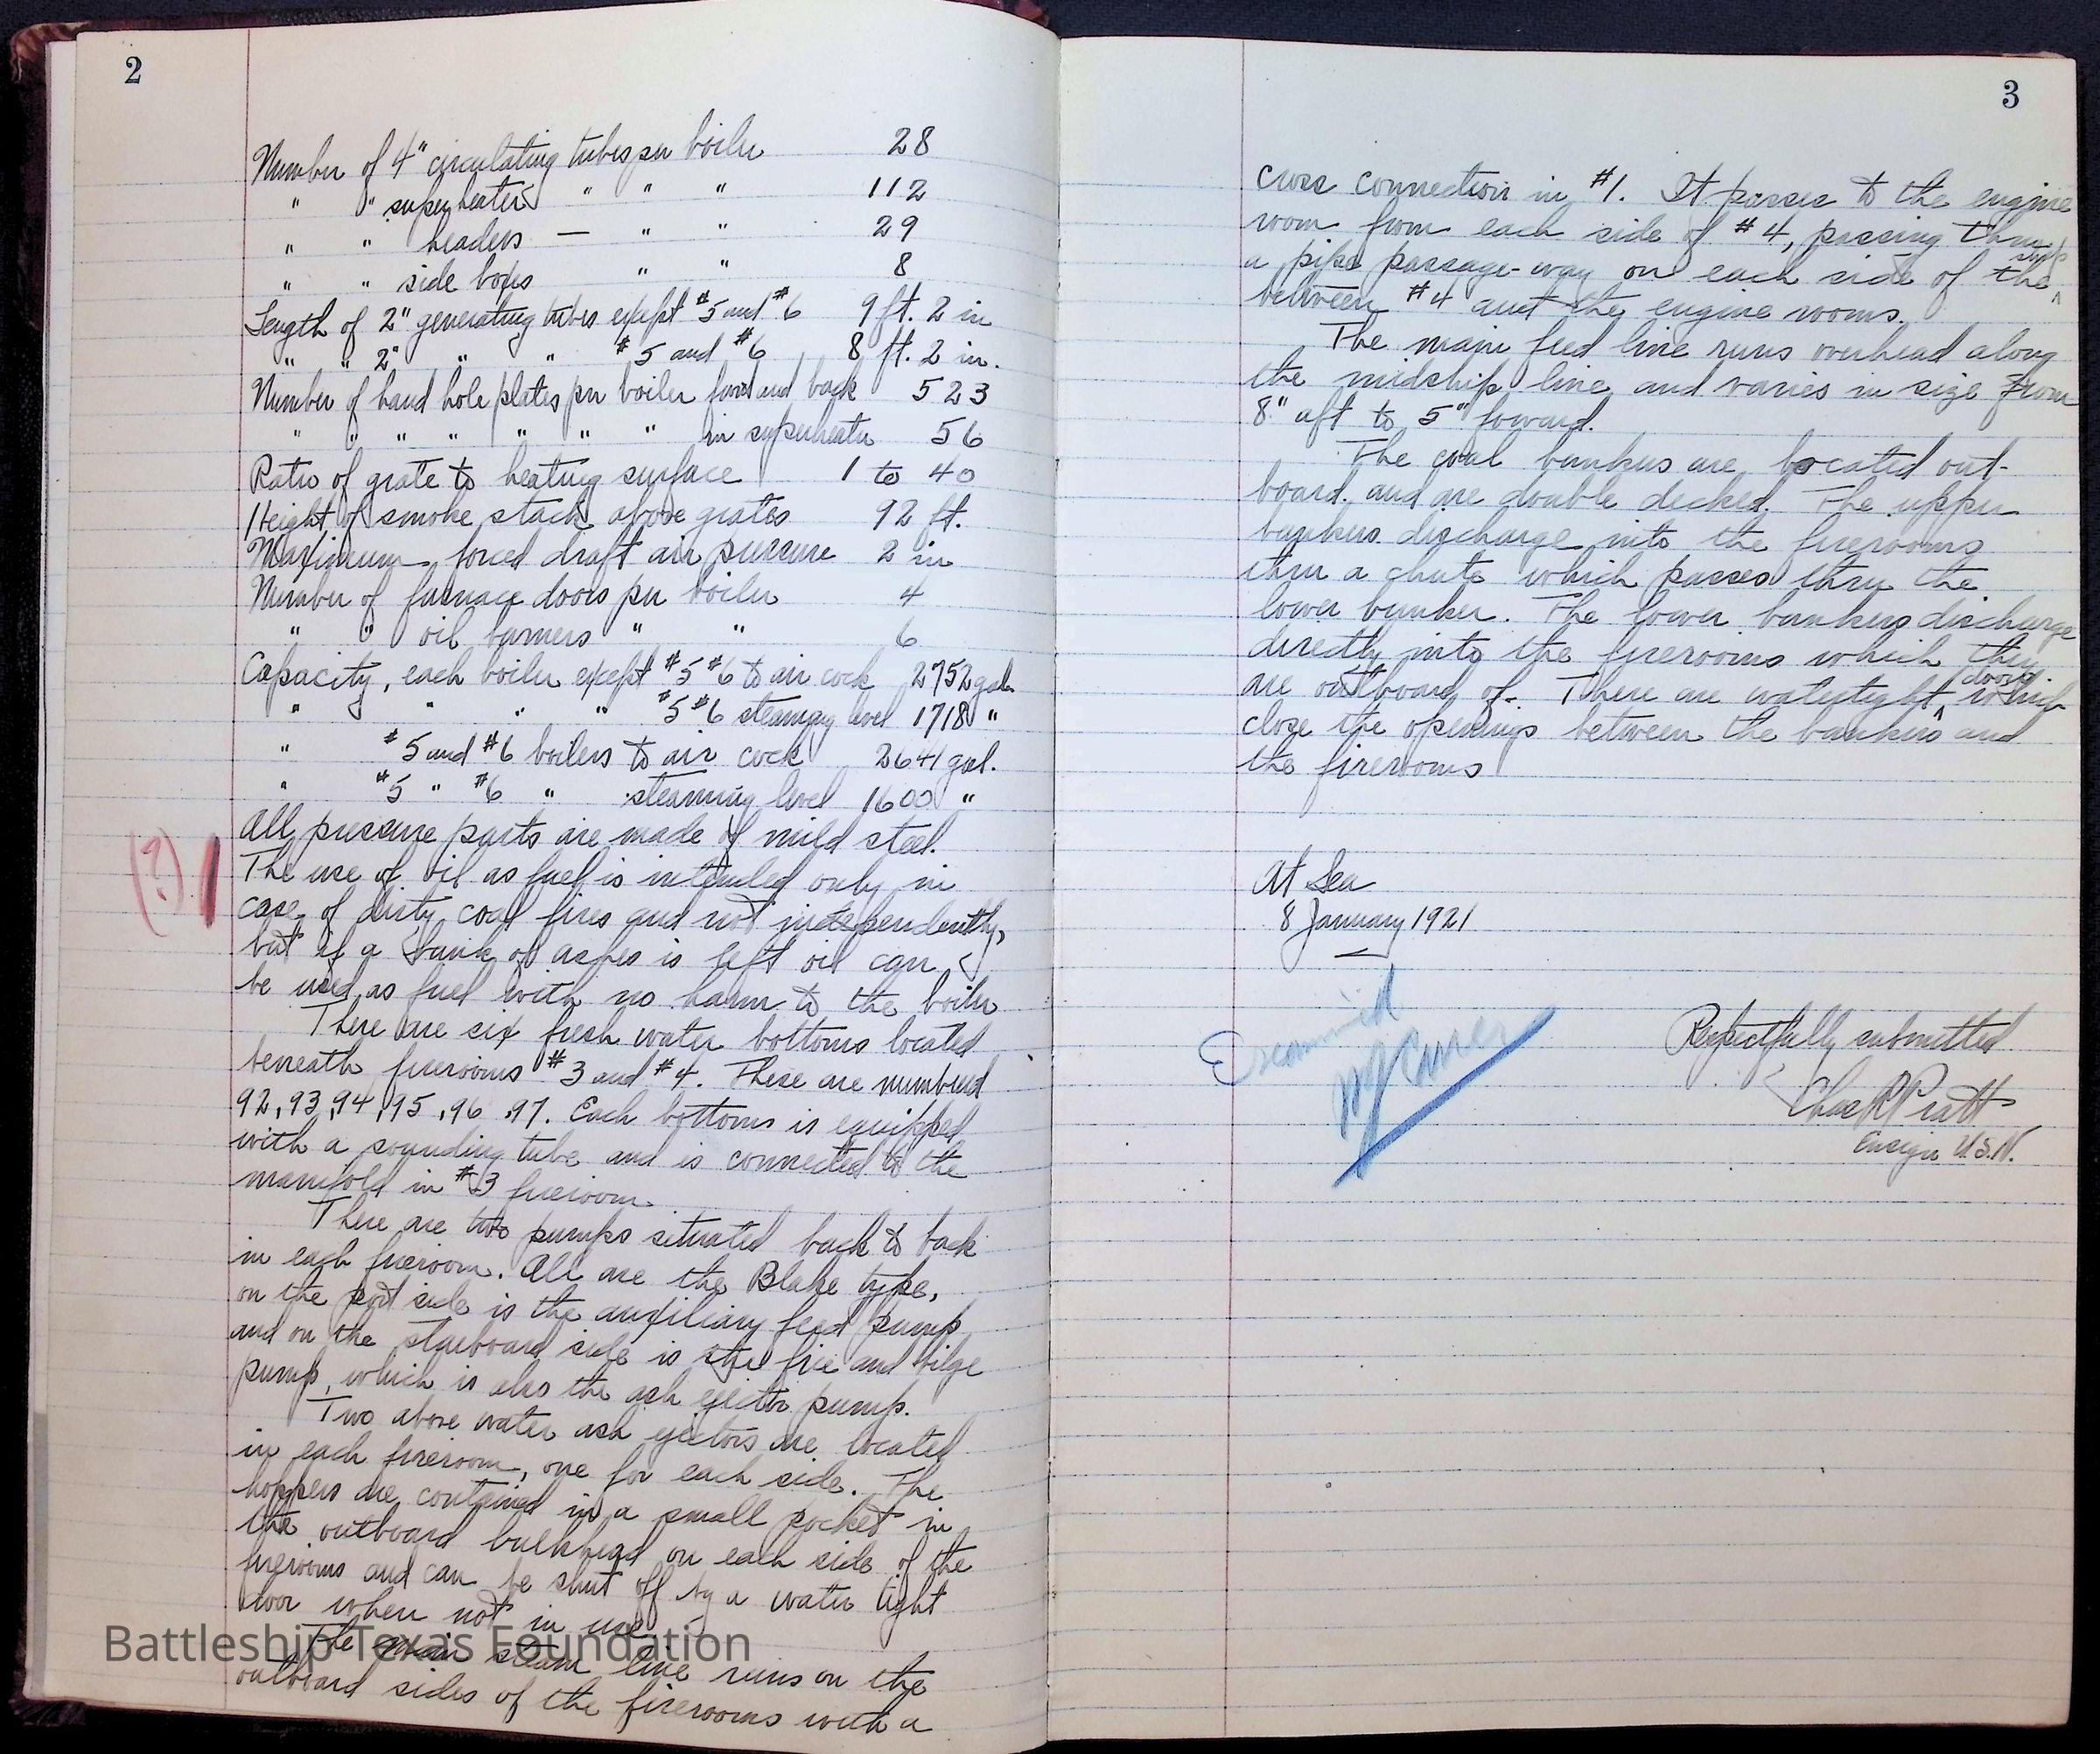 2
Number of 4" circulating tubes per boiler 28
" " superheater " " " 112
" " headers — " " 29
" " side boxes " " 8
Length of 2" generating tubes except #5 and #6 9 ft. 2 in
" " 2" " " #5 and #6 8 ft. 2 in.
Number of hand hole plates per boiler front and back 523
" " " " " " " in superheater 56
Ratio of grate to heating surface 1 to 40
Height of smoke stack above grates 92 ft.
Maximum forced draft air pressure 2 in
Number of furnace doors per boiler 4
" " oil burners " " 6
Capacity, each boiler except #5 #6 to air cock 2752 gal.
" " " " #5 #6 steaming level 1718 "
" #5 and #6 boilers to air cock 2641 gal.
" #5 " #6 " steaming level 1600 "
All pressure parts are made of mild steel.
(?) The use of oil as fuel is intended only in
case of dirty coal fires and not independently,
but if a bank of ashes is left oil can
be used as fuel with no harm to the boiler
There are six fresh water bottoms located
beneath firerooms #3 and #4. These are numbered
92, 93, 94, 95, 96, 97. Each bottoms is equipped
with a sounding tube and is connected to the
manifold in #3 fireroom.
There are two pumps situated back to back
in each fireroom. All are the Blake type,
on the port side is the auxiliary feed pump
and on the starboard side is the fire and bilge
pump, which is also the ash ejector pump.
Two above water ash ejectors are located
in each fireroom, one for each side. The
hoppers are contained in a small pocket in
the outboard bulkhead on each side of the
firerooms and can be shut off by a water tight
door when not in use.
The main steam line runs on the
outboard sides of the firerooms with a
Battleship Texas Foundation
3
cross connection in #1. It passes to the engine
room from each side of #4, passing thru
a pipe passage-way on each side of the
between #4 and the engine rooms.
The main feed line runs overhead along
the midship line and varies in size from
8" aft to 5" foward.
The coal bunkers are located out-
board. and are double decked. The upper
bunkers discharge into the firerooms
thru a chute which passes thru the
lower bunker. The lower bunkers discharge
directly into the firerooms which they
are outboard of. There are watertight doors which
close the openings between the bunkers and
the firerooms
At Sea
8 January 1921
Examined
Respectfully submitted
Chas R Pratt
Ensign U.S.N.